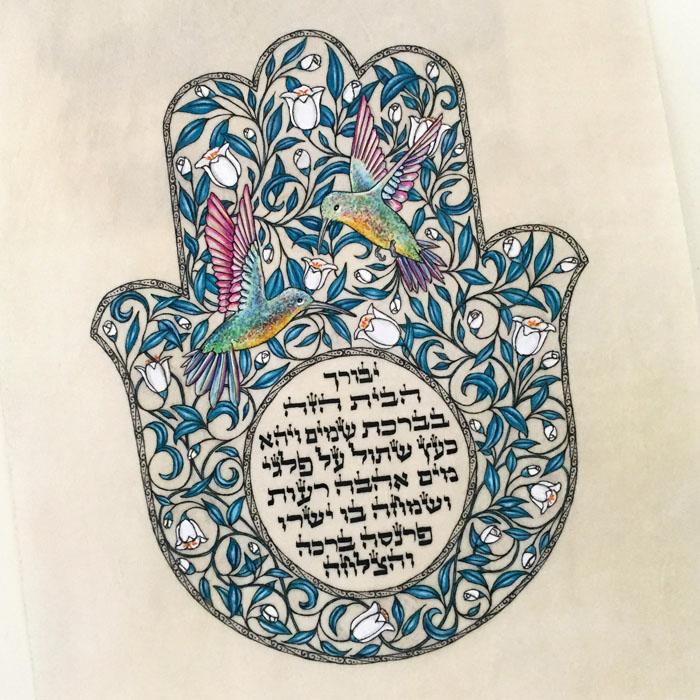 יבורך
הבית הזה
בברכת שמים ויהא
כעץ שתול על פלגי
מים אהבה רעות
ושמוחה בו ישרו
פרנסה ברכה
והצלחה